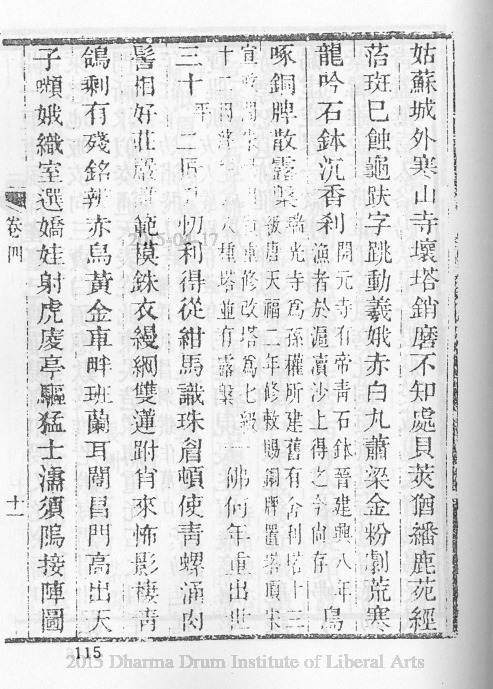 姑蘇城外寒山寺壞塔銷磨不知處貝莢猶繙鹿苑經
蓓斑已蝕龜趺字跳動羲娥赤白丸蕭梁金粉劃荒寒
龍吟石鉢沉香刹開元寺有帝青石鉢晉建興八年漁者於滬瀆沙上得之今尚存鳥
啄銅牌散露槃瑞光寺為孫權所建舊有舍利塔十三級唐天福二年修敕賜銅牌置塔頂宋
宣重修改塔為七級十二種塔並有露槃一佛何年重出世
三十二切利得從紺馬識珠龕頓使青螺涌肉
髻相好莊嚴範模銖衣縵網雙蓮跗肯來怖影棲青
鴿剩有殘銘新赤烏黃金車畔班蘭耳閶昌門高出天
子嬾娥織室選嬌娃射虎庱亭驅猛士濡須隖接陣圖
卷四
十一
115
2015 Dharma Drum Institute of Liberal Arts